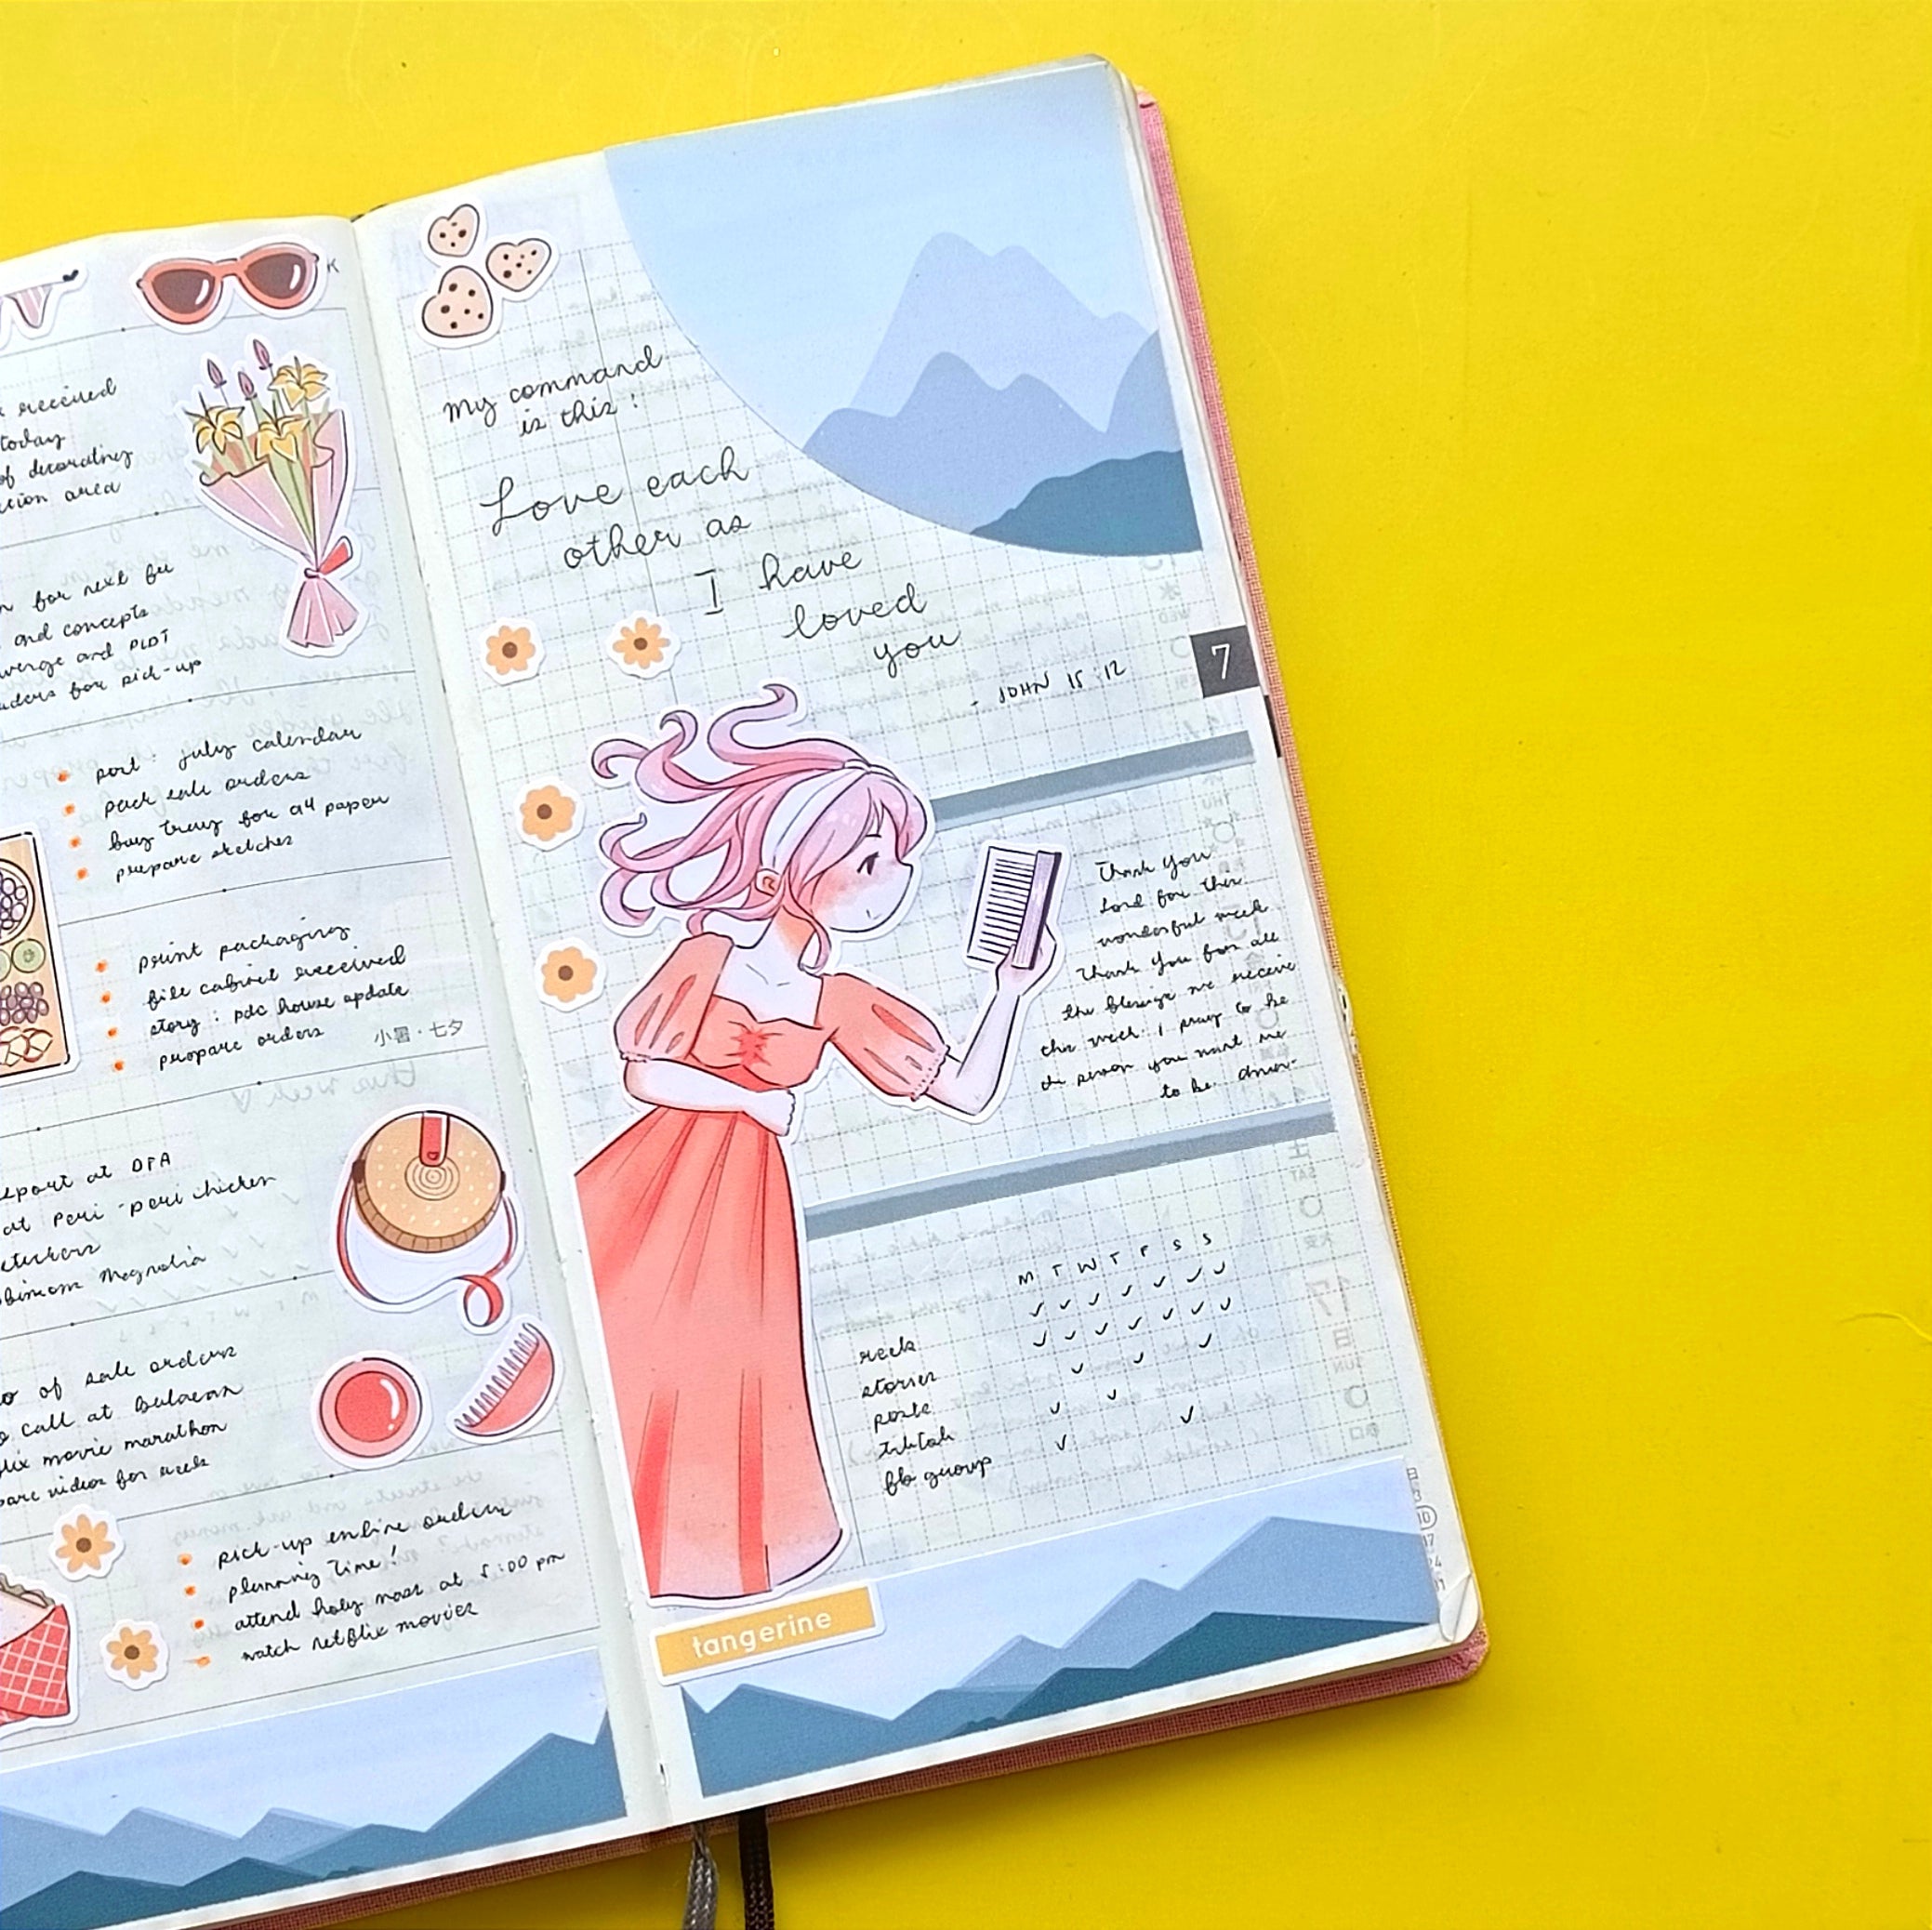 K
received
today
of decorating
area
for next
and concepts
and PLDT
for pick-up
post : july calendar
pack sale orders
buy tray for a4 paper
prepare sketches
print packaging
file cabinet received
story : pdc house update
prepare orders
小暑・七夕
report at DFA
at Peri-peri chicken
Magnolia
of sale orders
call at Bulacan
movie marathon
videos for week
pick-up online orders
planning time!
attend holy mass at 5:00 pm
watch netflix movies
My command
is this :
Love each
other as
I have
loved
you
- JOHN 15:12
7
Thank You
Lord for this
wonderful week
Thank You for all
the blessings we receive
this week. I pray to be
the person you want me
to be.
M T W T F S S
reels
stories
posts
tiktok
fb group
tangerine